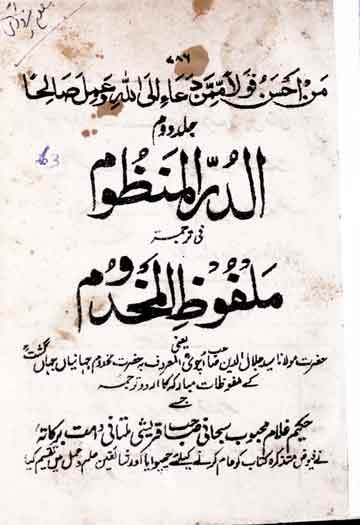 ۷۸۶
مَنْ اَحْسَنُ قَوْلًا مِّمَّنْ دَعَاۤ اِلَی اللّٰہِ وَعَمِلَ صَالِحًا
جلد دوم
الدُرّ المنظوم
فی ترجمۃ
ملفوظ المخدوم
یعنی
حضرت مولانا سید جلال الدین صاحب المعروف بہ حضرت مخدوم جہانیاں جہاں گشت
کے ملفوظات مبارکہ کا اردو ترجمہ
جسے
حکیم غلام محبوب سبحانی صاحب قریشی ملتانی دامت برکاتہٗ
نے فیوض متذکرہ کتاب کو عام کرنے کیلئے چھپوایا اور شائقین علم و عمل میں تقسیم کیا
63